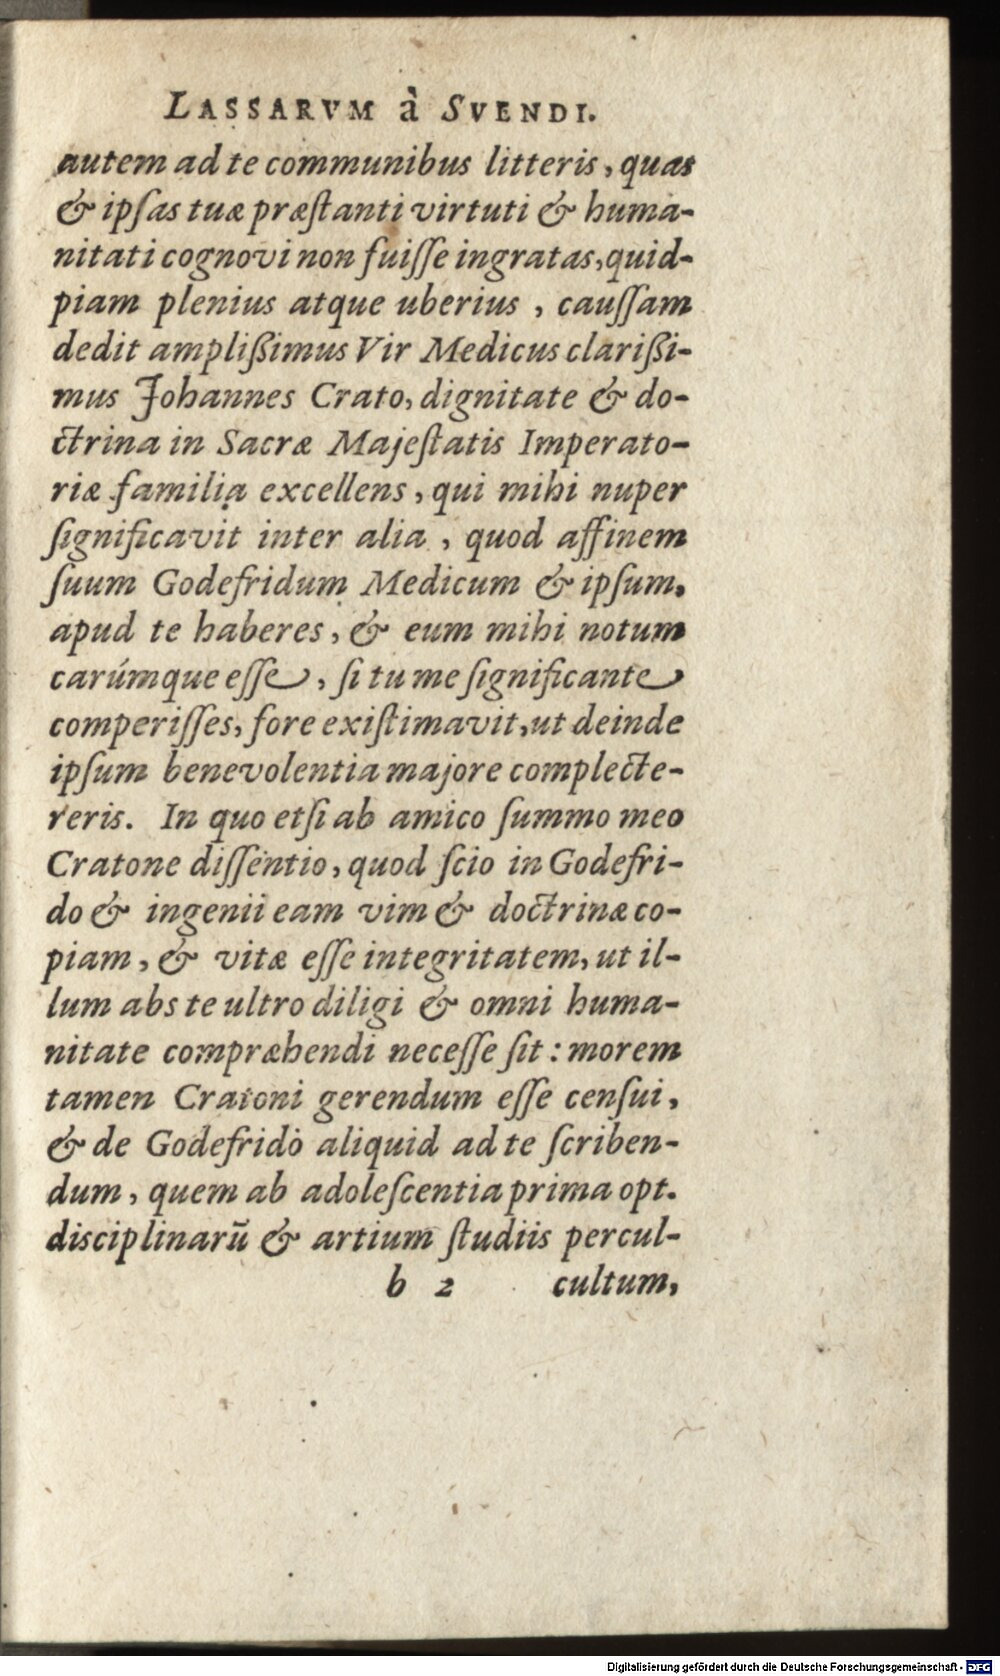 LASSARVM à SVENDI.
autem ad te communibus litteris, quas
& ipſas tuæ præſtanti virtuti & huma-
nitati cognovi non fuiſſe ingratas, quid-
piam plenius atque uberius, cauſſam
dedit ampliſſimus Vir Medicus clariſſi-
mus Johannes Crato, dignitate & do-
ctrina in Sacræ Majeſtatis Imperato-
riæ familia excellens, qui mihi nuper
ſignificavit inter alia, quod affinem
ſuum Godefridum Medicum & ipſum,
apud te haberes, & eum mihi notum
carúmque eſſe, ſi tu me ſignificante
comperiſſes, fore exiſtimavit, ut deinde
ipſum benevolentia majore complecte-
reris. In quo etſi ab amico ſummo meo
Cratone diſſentio, quod ſcio in Godefri-
do & ingenii eam vim & doctrinæ co-
piam, & vitæ eſſe integritatem, ut il-
lum abs te ultro diligi & omni huma-
nitate compræhendi neceſſe ſit: morem
tamen Cratoni gerendum eſſe cenſui,
& de Godefrido aliquid ad te ſcriben-
dum, quem ab adoleſcentia prima opt.
disciplinarū & artium ſtudiis percul-
b 2 cultum,
Digitalisierung gefördert durch die Deutsche Forschungsgemeinschaft - DFG